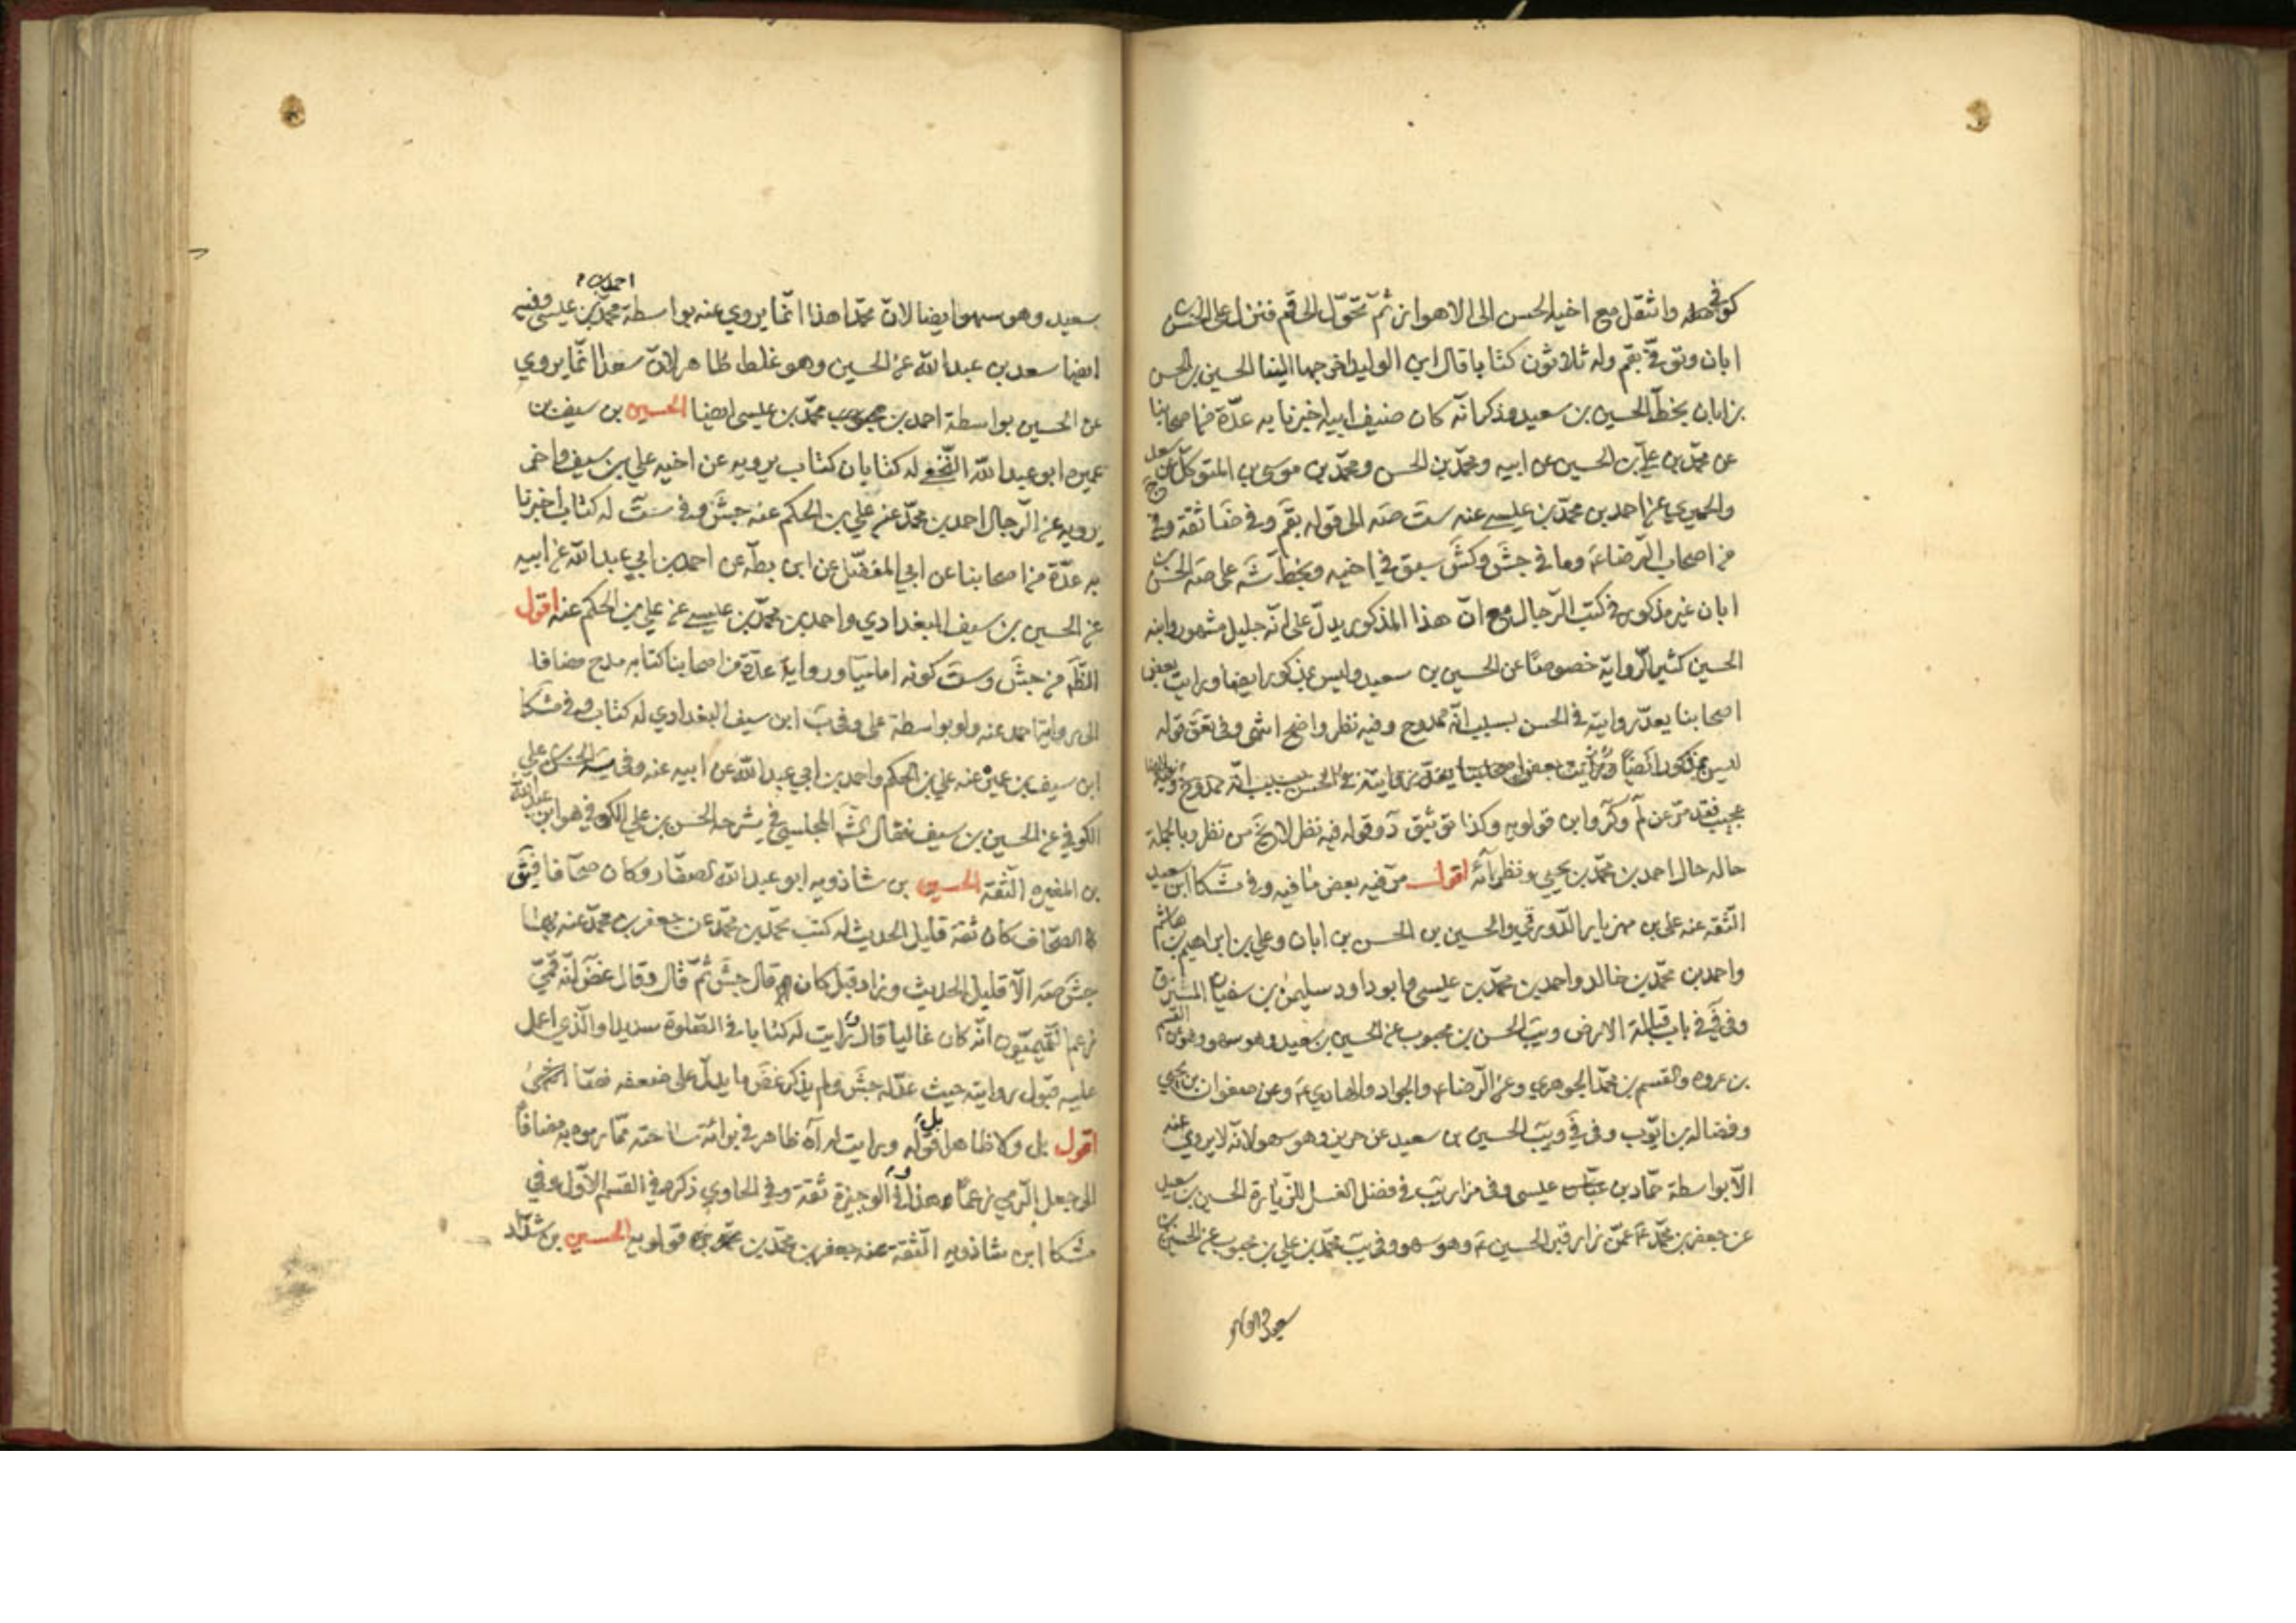 كوفي وانتقل مع اخيه الحسن الى الاهواز ثم تحوّل الى قم فنزل على الحسن بن
ابان وتوفّي بقم وله ثلاثون كتابا قال ابن الوليد اخرجها الينا الحسين بن الحسن
بن ابان بخطّ الحسين بن سعيد وذكر انّه كان ضيف ابيه اخبرنا به عدّة من اصحابنا
عن محمّد بن علي بن الحسين عن ابيه ومحمّد بن الحسن ومحمّد بن موسى بن المتوكّل عن سعد
والحميري عن احمد بن محمّد بن عيسى عنه ست صه الى قوله بقم وفي ضا ثقة وفي
من اصحاب الرّضا ع وما في جش وكش سبق في اخيه وبخطّ شه على صه الحسن بن
ابان غير مذكور في كتب الرّجال مع انّ هذا المذكور يدلّ على انّه جليل مشهور وابنه
الحسين كثير الرّواية خصوصًا عن الحسين بن سعيد وليس بمذكور ايضا ورايت بعض
اصحابنا يعدّ روايته في الحسن بسبب انّه ممدوح وفيه نظر واضح انتهى وفي تعق قوله
ليس بمذكور ايضًا ورأيت بعض اصحابنا يعدّ روايته في الحسن بسبب انّه ممدوح
عجيب فقد مرّ عن لم وكر وابن قولويه وكذا توثيق د وقوله فيه نظر نظر وبالجملة
حاله حال احمد بن محمّد بن يحيى ونظرائه اقول مرّ فيه بعض ما فيه وفي مشكا ابن سعيد
الثّقة عنه علي بن مهزيار الدّورقي والحسين بن الحسن بن ابان وعلي بن ابراهيم بن هاشم
واحمد بن محمّد بن خالد واحمد بن محمّد بن عيسى وابو داود سليمن بن سفيان المسترق
وفي في في باب قبالة الارض ويب الحسن بن محبوب عن الحسين بن سعيد وهو سهو وهو عن القسم
بن عروه والقسم بن محمّد الجوهري وعن الرّضا ع والجواد والهادي ع وعن صفوان بن يحيى
وفضالة بن ايّوب وفي في ويب الحسين بن سعيد عن حريز وهو سهو لانّه لا يروي عنه
الّا بواسطة حمّاد بن عيسى وفي مزار يب في فضل الغسل للزّيارة الحسين بن سعيد
عن جعفر بن محمّد ع عمّن زار قبر الحسين ع وهو سهو وفي يب محمّد بن علي بن محبوب عن الحسين بن
سعيد وهو سهو ايضا لانّ محمّدا هذا انّما يروي عنه بواسطة احمد بن محمّد بن عيسى وفيه
ايضا سعد بن عبد الله عن الحسين وهو غلط ظاهر لانّ سعدا انّما يروي
عن الحسين بواسطة احمد بن محمّد بن عيسى ايضا الحسين بن سيف بن
عميره ابو عبد الله النّخعي له كتابان كتاب يرويه عن اخيه علي بن سيف واخر
يرويه عن الرّجال احمد بن محمّد عن علي بن الحكم عنه جش وفي ست له كتاب اخبرنا
به عدّة من اصحابنا عن ابي المفضّل عن ابن بطّه عن احمد بن ابي عبد الله عن ابيه
عن الحسين بن سيف البغدادي واحمد بن محمّد بن عيسى عن علي بن الحكم عنه اقول
الظّ من جش وست كونه اماميّا ورواية عدّة من اصحابنا كتابه مدح مضافا
الى رواية احمد عنه ولو بواسطة علي وفي ب ابن سيف البغدادي له كتاب وفي مشكا
ابن سيف بن عميرة عنه علي بن الحكم واحمد بن ابي عبد الله عن ابيه عنه وفي الحسن بن علي
الكوفي عن الحسين بن سيف فقال المجلسي في شرحه الحسن بن علي الكوفي هو ابن عبد الله
بن المغيره الثّقة الحسين بن شاذويه ابو عبد الله الصفّار وكان صحّافا فيق
الصحّاف كان ثقة قليل الحديث له كتب محمّد بن محمّد عن جعفر بن محمّد عنه بها
جش صه الّا قليل الحديث وزاد قبل كان قال جش ثمّ قال وقال غض انّه قمّيّ
زعم القميّون انّه كان غاليا قال ورايت له كتابا في الصّلوة سديدا والّذي اعمل
عليه قبول روايته حيث عدّله جش ولم يذكر غض ما يدلّ على ضعفه نصّا انتهى
اقول بل وكلا ظاهرا بل قوله ورايت له اه ظاهر في برائة ساحته ممّا رموه به مضافا
الى جعل الرّمي زعمًا ولذا في الوجيزة ثقة وفي الحاوي ذكره في القسم الاوّل وفي
مشكا ابن شاذويه الثّقة عنه جعفر بن محمّد بن قولويه الحسين بن شدّاد